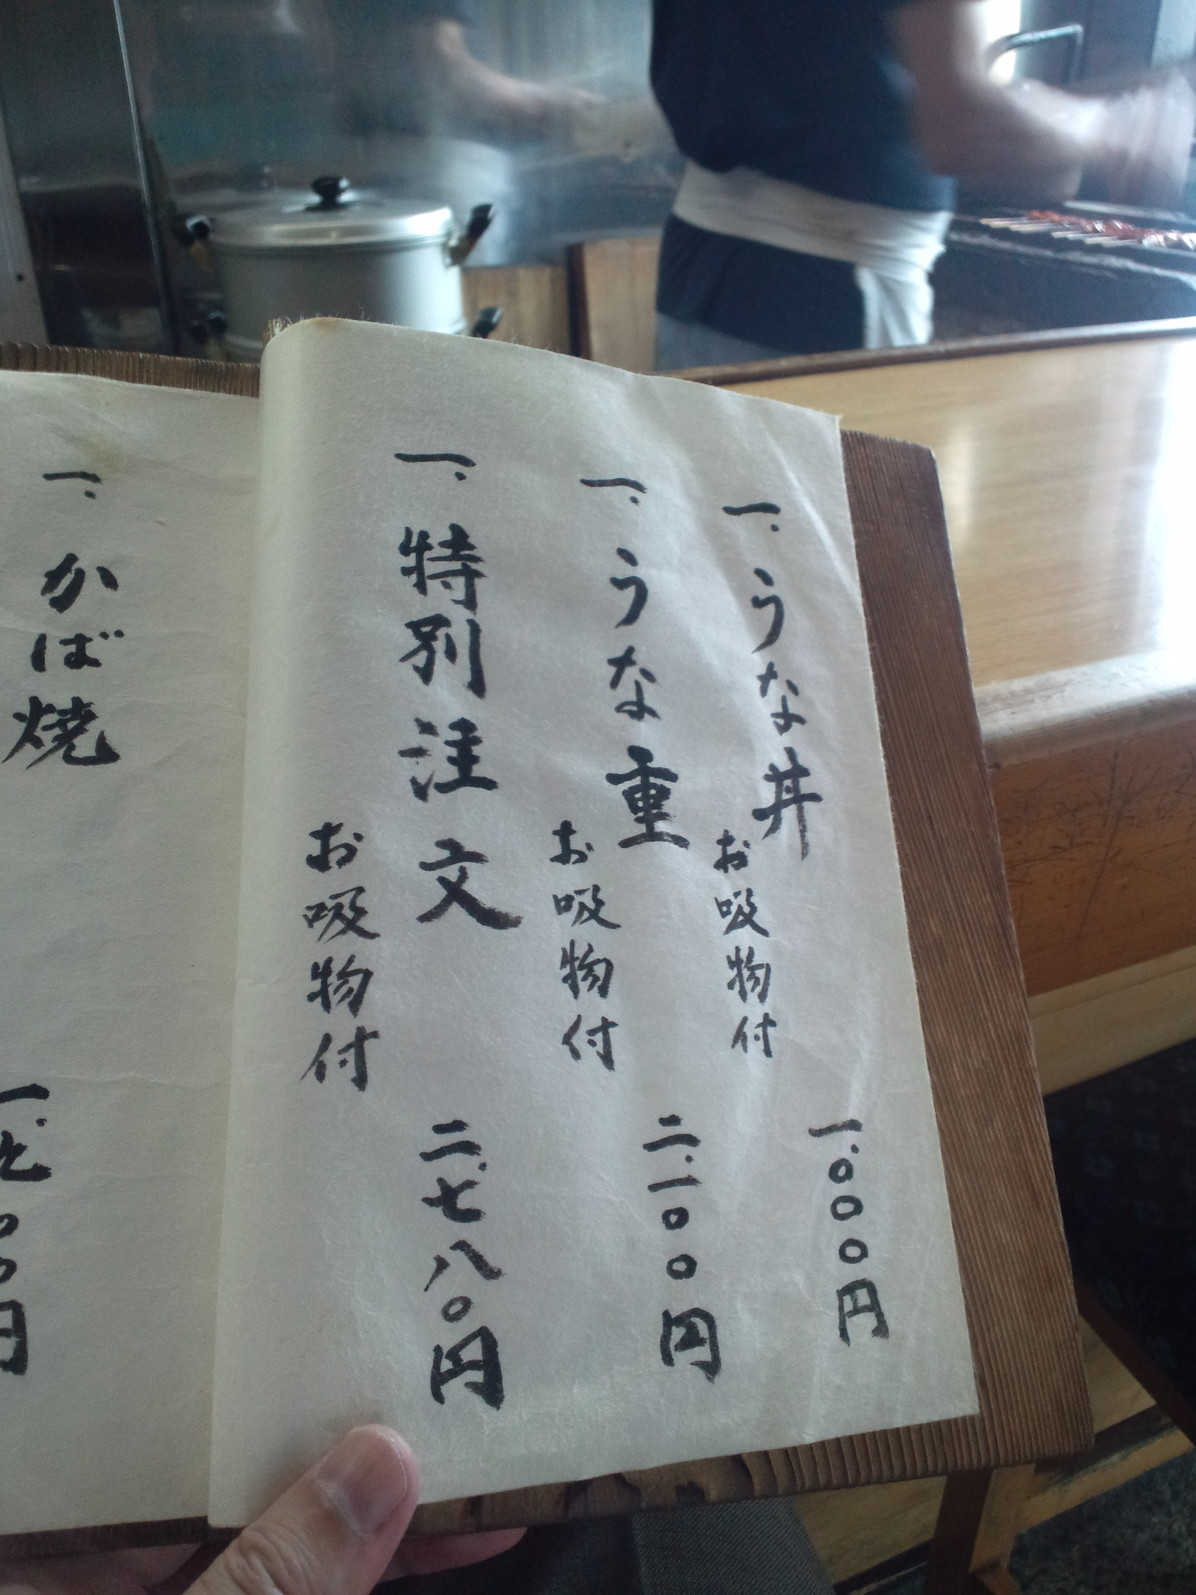 一、うな丼
お吸物付
一、〇〇〇円
一、うな重
お吸物付
二、一〇〇円
一、特別注文
お吸物付
二、七八〇円
一、かば焼